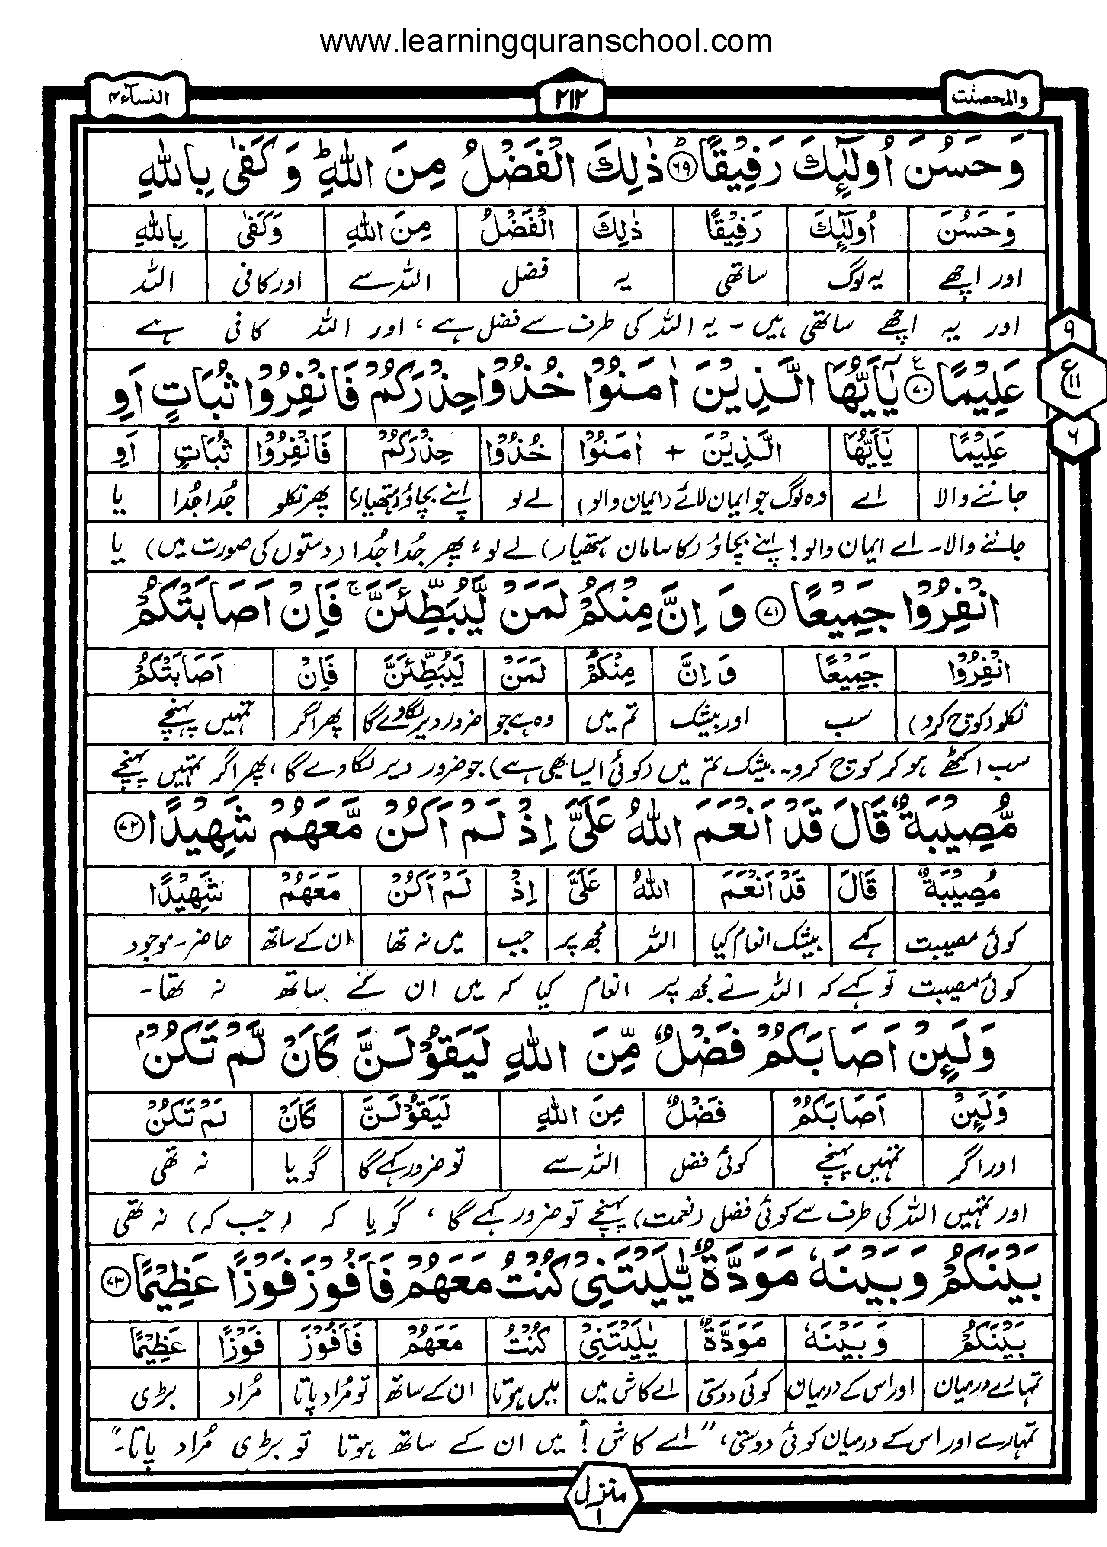 www.learningquranschool.com
والمحصنت ۲۱۲ النسآء۴
وَحَسُنَ اُولٰٓئِكَ رَفِيْقًا ﴿۶۹﴾ ذٰلِكَ الْفَضْلُ مِنَ اللّٰهِ ؕ وَ كَفٰى بِاللّٰهِ
وَحَسُنَ اُولٰٓئِكَ رَفِيْقًا ذٰلِكَ الْفَضْلُ مِنَ اللّٰهِ وَكَفٰى بِاللّٰهِ
اور اچھے یہ لوگ ساتھی یہ فضل اللہ سے اور کافی اللہ
اور یہ اچھے ساتھی ہیں ۔ یہ اللہ کی طرف سے فضل ہے، اور اللہ کافی ہے
۹
عَلِيْمًا ﴿۷۰﴾ يٰٓاَيُّهَا الَّذِيْنَ اٰمَنُوْا خُذُوْا حِذْرَكُمْ فَانْفِرُوْا ثُبَاتٍ اَوِ
ع ۱۱
عَلِيْمًا يٰٓاَيُّهَا الَّذِيْنَ + اٰمَنُوْا خُذُوْا حِذْرَكُمْ فَانْفِرُوْا ثُبَاتٍ اَوِ
۶
جاننے والا اے وہ لوگ جو ایمان لائے (ایمان والو) لے لو اپنے بچاؤ (ہتھیار) پھر نکلو جُدا جُدا یا
جاننے والا۔ اے ایمان والو! اپنے بچاؤ (کا سامان ہتھیار) لے لو، پھر جُدا جُدا (دستوں کی صورت میں) یا
انْفِرُوْا جَمِيْعًا ﴿۷۱﴾ وَ اِنَّ مِنْكُمْ لَمَنْ لَّيُبَطِّئَنَّ ۚ فَاِنْ اَصَابَتْكُمْ
انْفِرُوْا جَمِيْعًا وَ اِنَّ مِنْكُمْ لَمَنْ لَيُبَطِّئَنَّ فَاِنْ اَصَابَتْكُمْ
نکلو (کوچ کرو) سب اور بیشک تم میں وہ ہے جو ضرور دیر لگا دے گا پھر اگر تمہیں پہنچے
سب اکٹھے ہو کر کوچ کرو۔ بیشک تم میں (کوئی ایسا بھی ہے) جو ضرور دیر لگا دے گا، پھر اگر تمہیں پہنچے
مُّصِيْبَةٌ قَالَ قَدْ اَنْعَمَ اللّٰهُ عَلَيَّ اِذْ لَمْ اَكُنْ مَّعَهُمْ شَهِيْدًا ﴿۷۲﴾
مُصِيْبَةٌ قَالَ قَدْ اَنْعَمَ اللّٰهُ عَلَيَّ اِذْ لَمْ اَكُنْ مَعَهُمْ شَهِيْدًا
کوئی مصیبت کہے بیشک انعام کیا اللہ مجھ پر جب میں نہ تھا ان کے ساتھ حاضر۔موجود
کوئی مصیبت تو کہے کہ اللہ نے مجھ پر انعام کیا کہ میں ان کے ساتھ نہ تھا۔
وَلَئِنْ اَصَابَكُمْ فَضْلٌ مِّنَ اللّٰهِ لَيَقُوْلَنَّ كَاَنْ لَّمْ تَكُنْۢ
وَلَئِنْ اَصَابَكُمْ فَضْلٌ مِنَ اللّٰهِ لَيَقُوْلَنَّ كَاَنْ لَمْ تَكُنْ
اور اگر تمہیں پہنچے کوئی فضل اللہ سے تو ضرور کہے گا گویا نہ تھی
اور تمہیں اللہ کی طرف سے کوئی فضل (نعمت) پہنچے تو ضرور کہے گا، گویا کہ (جب کہ) نہ تھی
بَيْنَكُمْ وَبَيْنَهٗ مَوَدَّةٌ يّٰلَيْتَنِيْ كُنْتُ مَعَهُمْ فَاَفُوْزَ فَوْزًا عَظِيْمًا ﴿۷۳﴾
بَيْنَكُمْ وَبَيْنَهٗ مَوَدَّةٌ يٰلَيْتَنِيْ كُنْتُ مَعَهُمْ فَاَفُوْزَ فَوْزًا عَظِيْمًا
تمہارے درمیان اور اس کے درمیان کوئی دوستی اے کاش میں میں ہوتا ان کے ساتھ تو مُراد پاتا مُراد بڑی
تمہارے اور اس کے درمیان کوئی دوستی، "اے کاش! میں ان کے ساتھ ہوتا تو بڑی مُراد پاتا۔"
منزل ۱